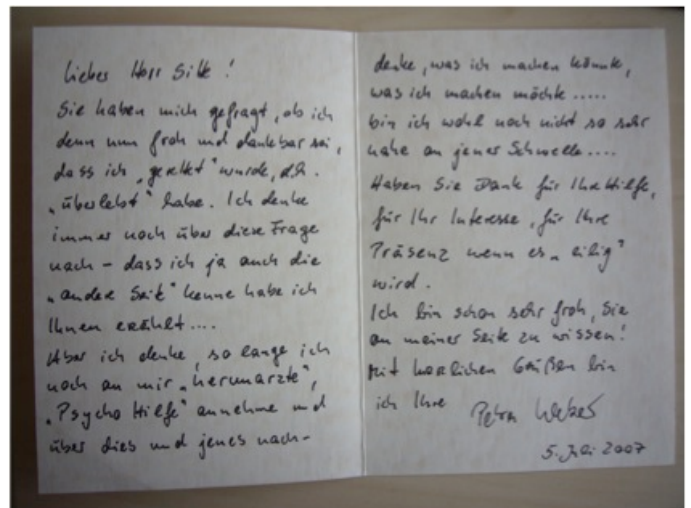 Lieber Herr Silk !
Sie haben mich gefragt, ob ich
denn nun froh und dankbar sei,
dass ich „gerettet" wurde, d.h.
„überlebt" habe. Ich denke
immer noch über diese Frage
nach – dass ich ja auch die
„andere Seite" kenne habe ich
Ihnen erzählt....
Aber ich denke, so lange ich
noch an mir „herumarzte",
„Psycho Hilfe" annehme und
über dies und jenes nach-
denke, was ich machen könnte,
was ich machen möchte.....
bin ich wohl noch nicht so sehr
nahe an jener Schwelle....
Haben Sie Dank für Ihre Hilfe,
für Ihr Interesse, für Ihre
Präsenz wenn es „eilig"
wird.
Ich bin schon sehr froh, Sie
an meiner Seite zu wissen!
Mit herzlichen Grüßen bin
ich Ihre Petra Weber
5. Juli 2007